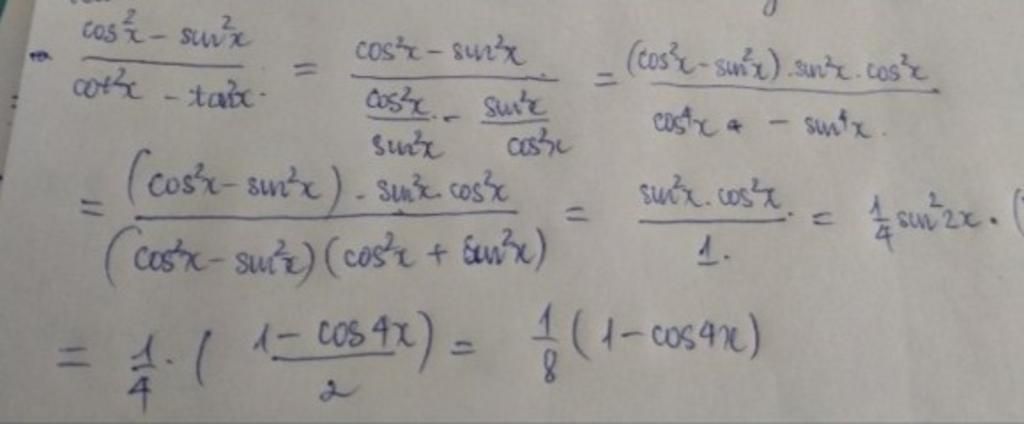 \frac{cos^2x - sin^2x}{cot^2x - tan^2x} = \frac{cos^2x - sin^2x}{\frac{cos^2x}{sin^2x} - \frac{sin^2x}{cos^2x}} = \frac{(cos^2x - sin^2x) \cdot sin^2x \cdot cos^2x}{cos^4x - sin^4x}
= \frac{(cos^2x - sin^2x) \cdot sin^2x \cdot cos^2x}{(cos^2x - sin^2x)(cos^2x + sin^2x)} = \frac{sin^2x \cdot cos^2x}{1} = \frac{1}{4} sin^2 2x \cdot (
= \frac{1}{4} \cdot ( \frac{1 - cos4x}{2} ) = \frac{1}{8} (1 - cos4x)